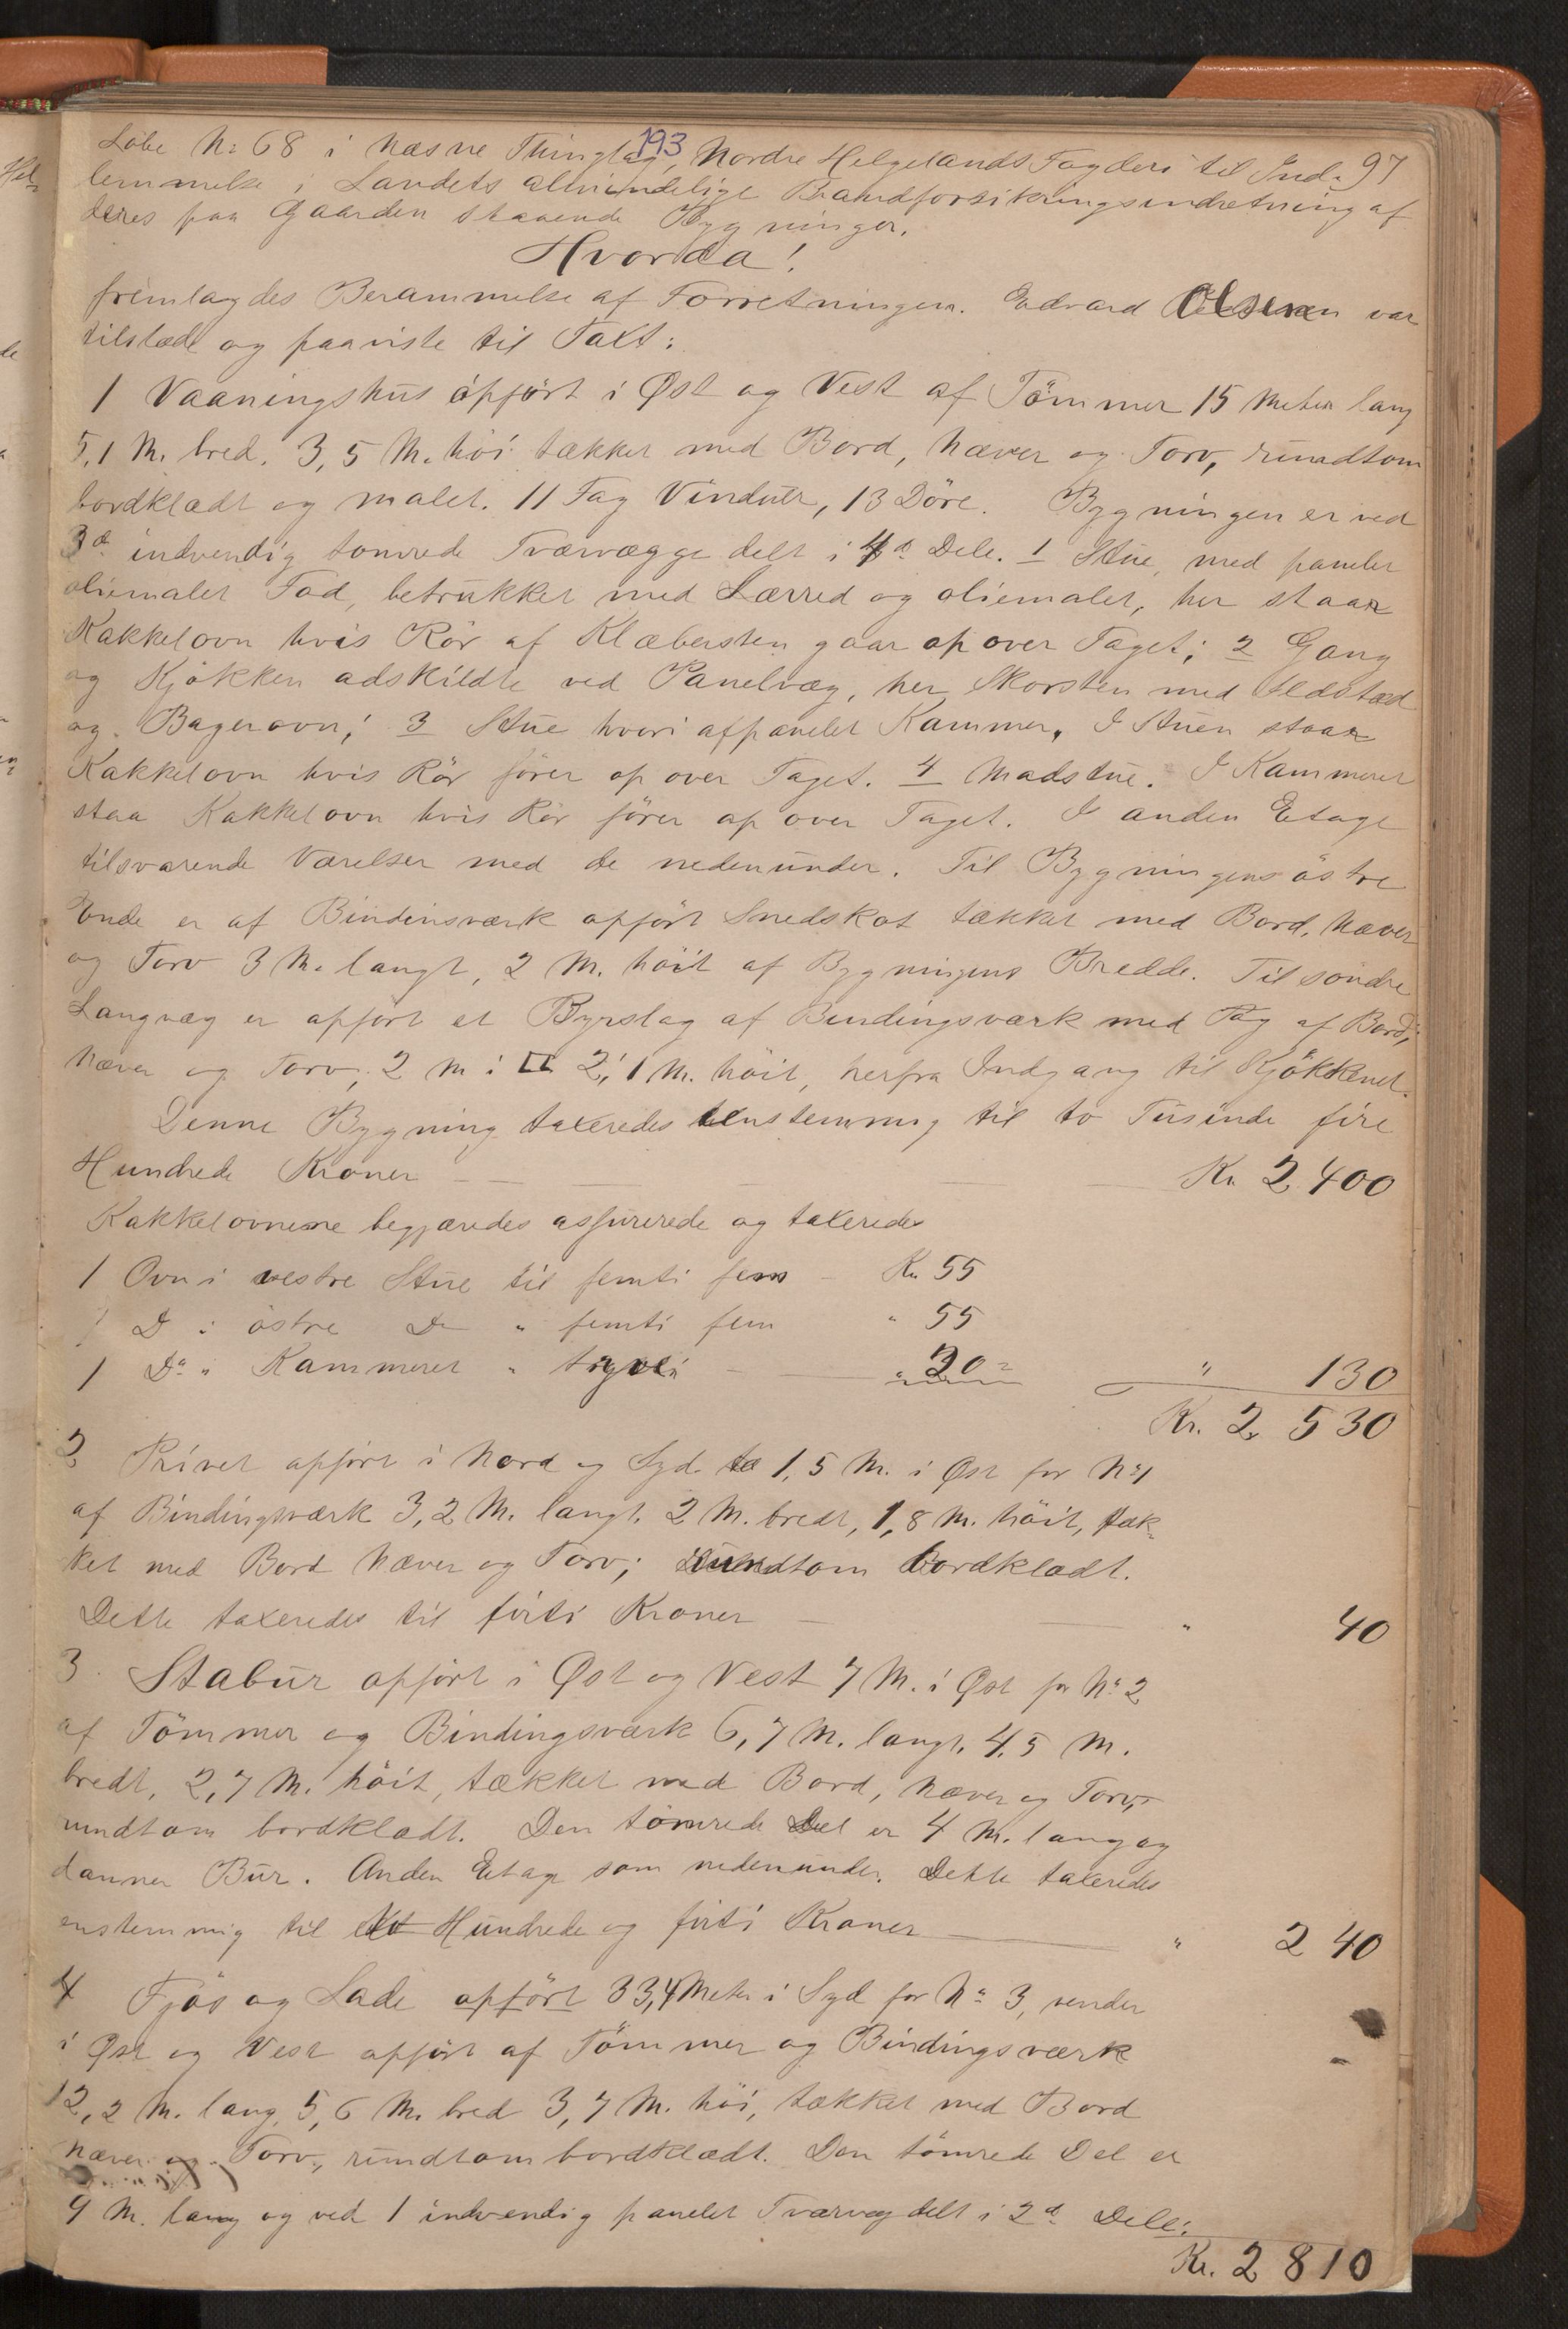 193
Löbe No 68 i Næsne Thinglag, Nordre Helgelands Fogderi til Ind- 97
lemmelse i Landets almindelige Brandforsikringsindretning af
deres paa Gaarden staaende Bygninger.
Hvorda!
fremlagdes Berammelse af Forretningen. Edvard Olsen var
tilstede og paaviste til Taxt:
1 Vaaningshus opfört i Øst og Vest af Tömmer 15 Meter lang
5,1 M. bred. 3,5 M. höi tækket med Bord, Næver og Torv, rundtom
bordklædt og malet. 11 Fag Vinduer, 13 Döre. Bygningen er ved
3de indvendig tømrede Tværvægge delt i 4de Dele. 1 Stue, med panelet
oliemalet Tad, betrukket med Lærred og oliemalet, her staar
Kakkelovn hvis Rör af Klæbersten gaar op over Taget; 2 Gang
og Kjökken adskildte ved Panelvæg, her Skorsten med Ildsted
og Bagerovn; 3 Stue hvori afpanelet Kammer. I Stuen staar
Kakkelovn hvis Rör förer op over Taget. 4 Madstue. I Kammeret
staa Kakkelovn hvis Rör förer op over Taget. I anden Etage
tilsvarende Værelser med de nedenunder. Til Bygningens östre
Ende er af Bindinsværk opfört Snedskot tækket med Bord, Næver
og Torv 3 M. langt, 2 M. höit af Bygningens Bredde. Til söndre
Langvæg er opfört et Byrslag af Bindingsværk med Tag af Bord,
Næver og Torv, 2 M i □ 2,1 M. höit, herfra Indgang til Kjökkenet.
Denne Bygning taxeredes enstemmig til to Tusinde fire
Hundrede Kroner Kr. 2400
Kakkelovnene begjæredes assurerede og taxeredes
1 Ovn i vestre Stue til femti fem Kr. 55
1 Do i östre Do " femti fem " 55
1 Do i Kammeret " tyve " 20 " 130
Kr. 2530
2 Privet opfört i Nord og Syd 1,5 M. i Øst for No 1
af Bindingsværk 3,2 M. langt. 2 M. bredt, 1,8 M. höit, tæk-
ket med Bord Næver og Torv; rundtom bordklædt.
Dette taxeredes til firti Kroner " 40
3. Stabur opfört i Øst og Vest 7 M. i Øst for No 2
af Tömmer og Bindingsværk 6,7 M. langt. 4,5 M.
bredt, 2,7 M. höit, tækket med Bord, Næver og Torv,
rundtom bordklædt. Den tömrede Del er 4 M. lang og
danner Bur. Anden Etage som nedenunder. Dette taxeredes
enstemmig til Hundrede og firti Kroner " 240
4 Fjös og Lade opfört 33,4 Meter i Syd for No 3, vender
i Øst og Vest opfört af Tömmer og Bindingsværk
12,2 M. lang, 5,6 M. bred 3,7 M. höi, tækket med Bord
Næver og Torv, rundtom bordklædt. Den tömrede Del er
9 M. lang og ved 1 indvendig panelet Tværvæg delt i 2de Dele:
Kr. 2810